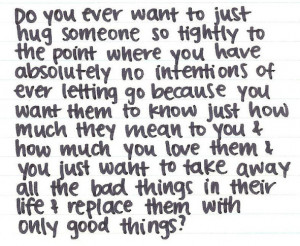 Do you ever want to just
hug someone so tightly to
the point where you have
absolutely no intentions of
ever letting go because you
want them to know just how
much they mean to you &
how much you love them &
you just want to take away
all the bad things in their
life & replace them with
only good things?